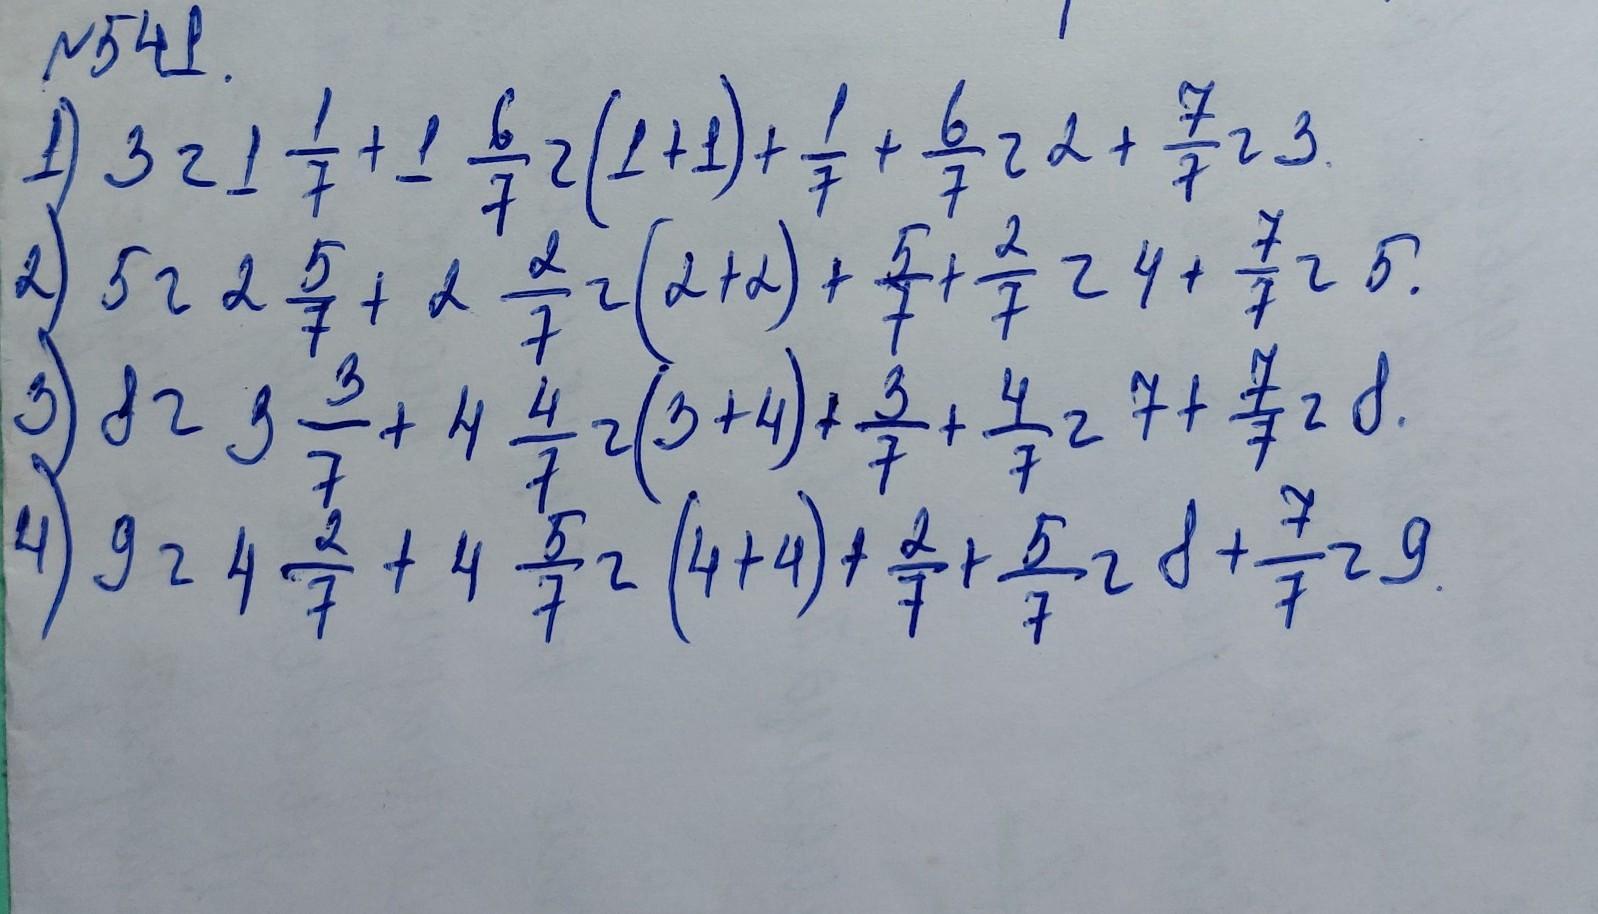 №541.
1) 3 = 1 1/7 + 1 6/7 = (1+1) + 1/7 + 6/7 = 2 + 7/7 = 3.
2) 5 = 2 5/7 + 2 2/7 = (2+2) + 5/7 + 2/7 = 4 + 7/7 = 5.
3) 8 = 3 3/7 + 4 4/7 = (3+4) + 3/7 + 4/7 = 7 + 7/7 = 8.
4) 9 = 4 2/7 + 4 5/7 = (4+4) + 2/7 + 5/7 = 8 + 7/7 = 9.